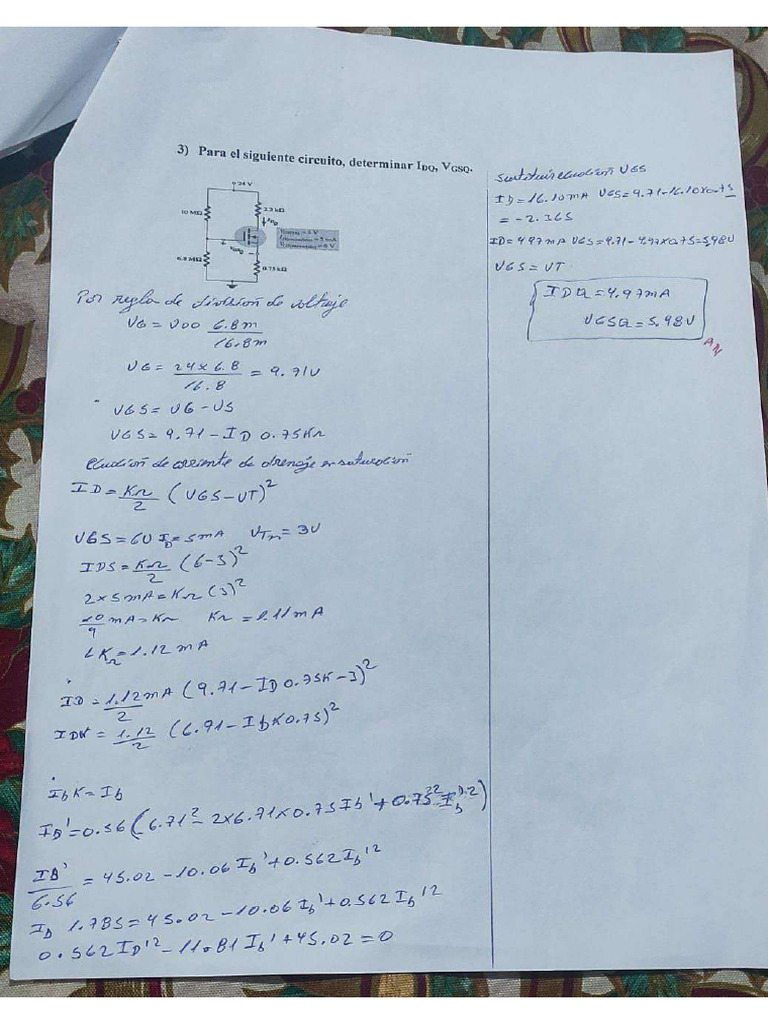 3) Para el siguiente circuito, determinar IDQ, VGSQ.
24 V
10 MΩ
2.2 kΩ
IDQ
VGSQ
6.8 MΩ
0.75 kΩ
Por regla de división de voltaje
VG = VDD 6.8m
16.8m
VG = 24 x 6.8 = 9.71V
16.8
VGS = VG - VS
VGS = 9.71 - ID 0.75KΩ
ecuación de corriente de drenaje en saturación
ID = Kn (VGS - VT)²
2
VGS = 6V ID = 5mA VTn = 3V
IDS = Kn (6-3)²
2
2 x 5mA = Kn (3)²
10 mA = Kn Kn = 1.11mA
9
Kn = 1.12 mA
ID = 1.12mA (9.71 - ID 0.75K - 3)²
2
IDK = 1.12 (6.71 - IDK0.75)²
2
IbK = Ib
ID' = 0.56 (6.71² - 2x6.71x0.75Ib' + 0.75² Ib'2)
ID' = 45.02 - 10.06 Ib' + 0.562 Ib'2
0.56
ID 1.785 = 45.02 - 10.06 Ib' + 0.562 Ib'2
0.562 ID'2 - 11.81 Ib' + 45.02 = 0
Sustituir ecuación VGS
ID = 16.10mA VGS = 9.71 - 16.10x0.75
= -2.365
ID = 4.97mA VGS = 9.71 - 4.97x0.75 = 5.98V
VGS = VT
IDQ = 4.97mA
VGSQ = 5.98V